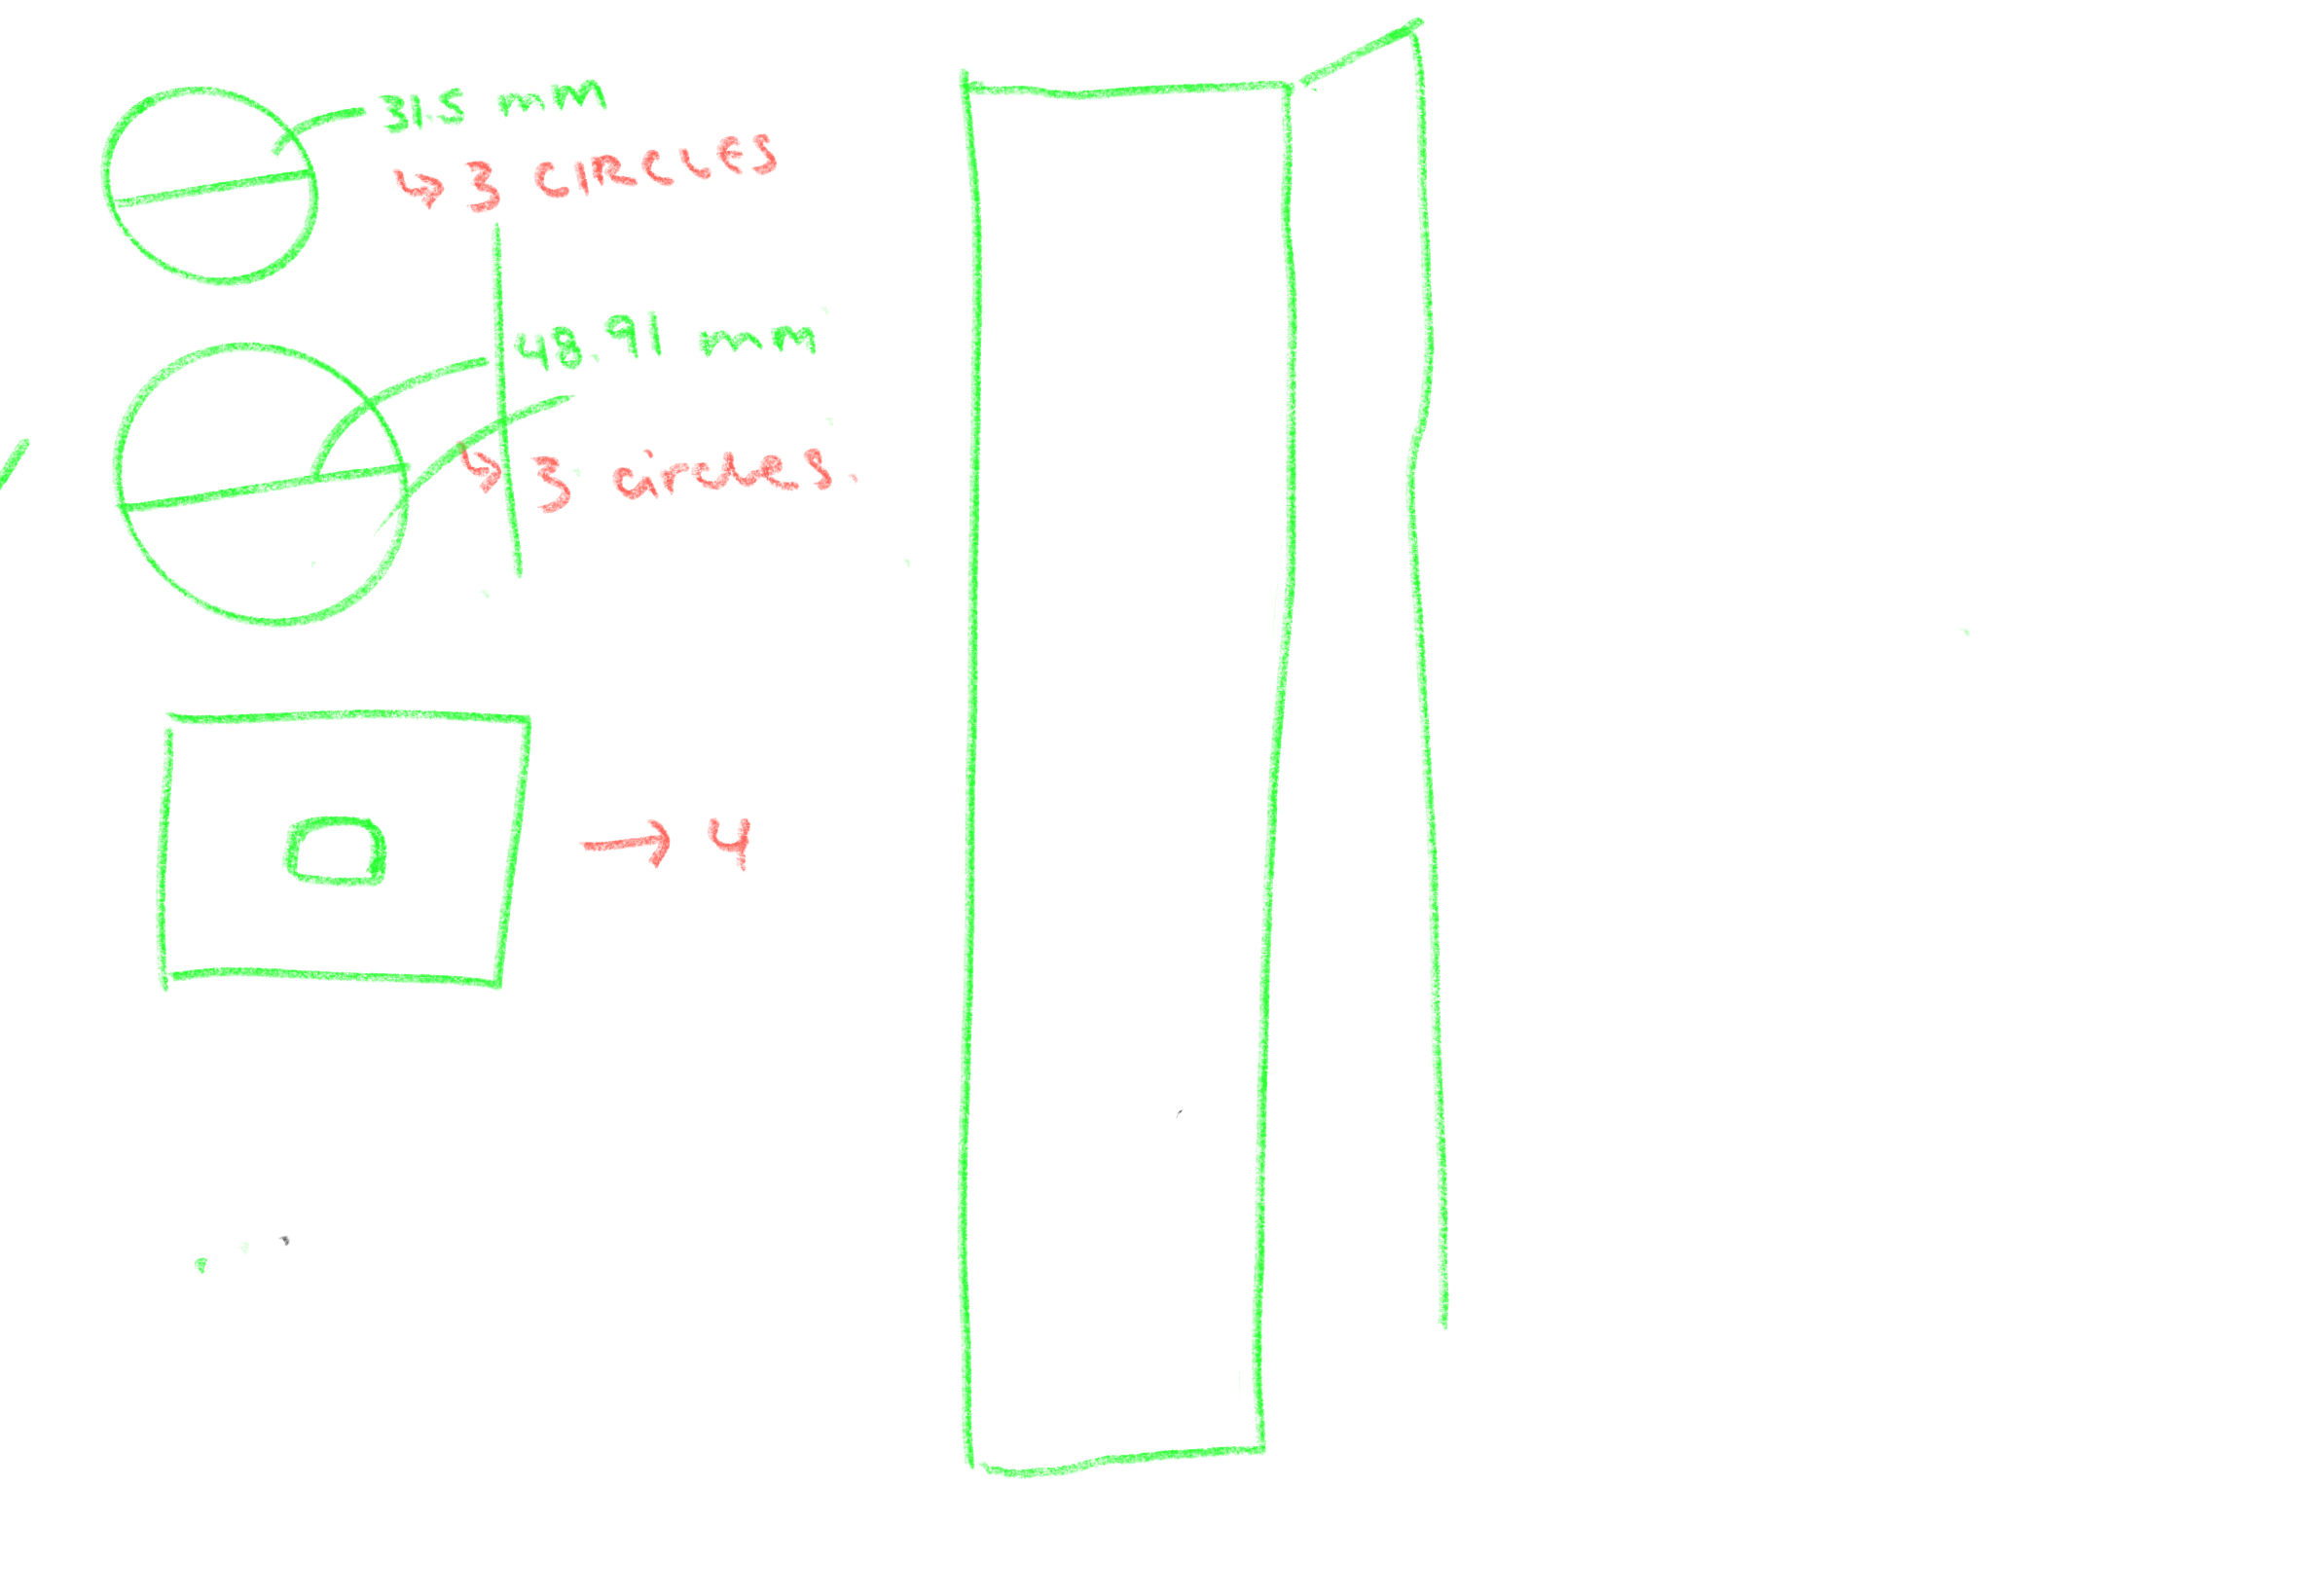 31.5 mm
↳ 3 CIRCLES
48.91 mm
↳ 3 circles.
→ 4